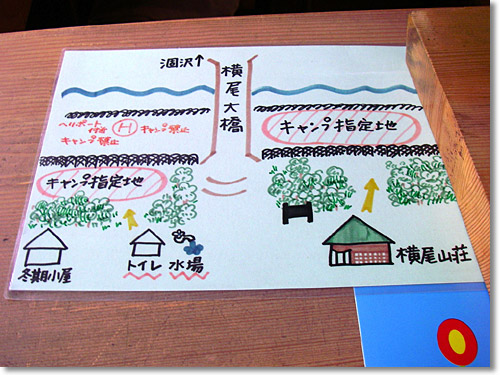 涸沢↑
横尾大橋
ヘリポート
付近
H
キャンプ禁止
キャンプ禁止
キャンプ指定地
キャンプ指定地
冬期小屋
トイレ
水場
横尾山荘